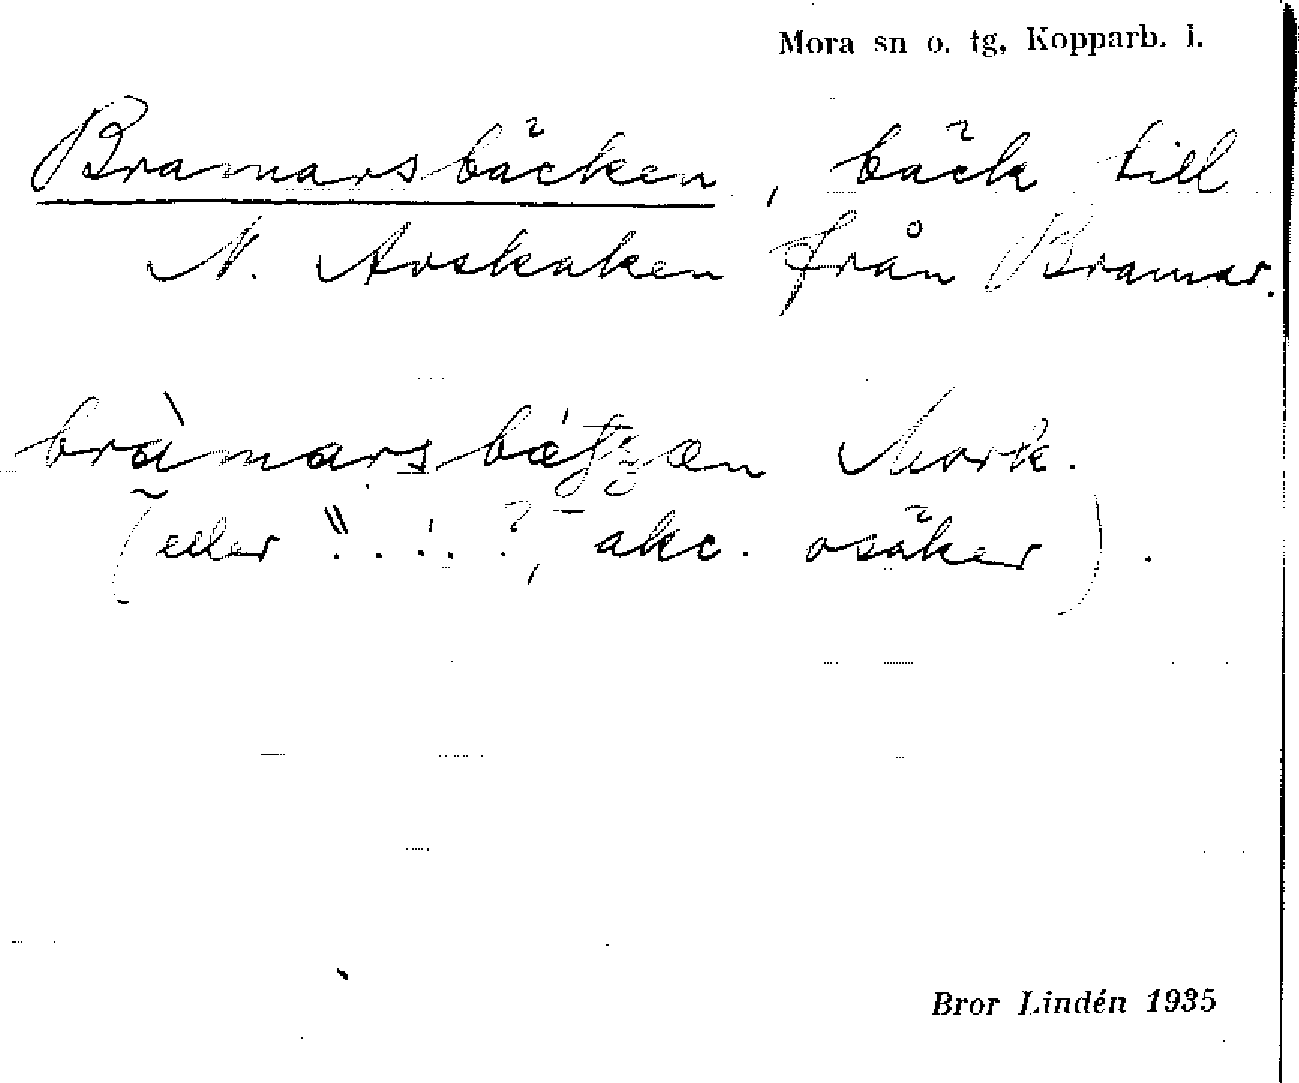 Mora sn o. tg, Kopparb. l.
Bramarsbäcken, bäck till
N. Arskaken från Bramar.
Mork.
(eller ... ?, akc. osäker).
Bror Lindén 1935